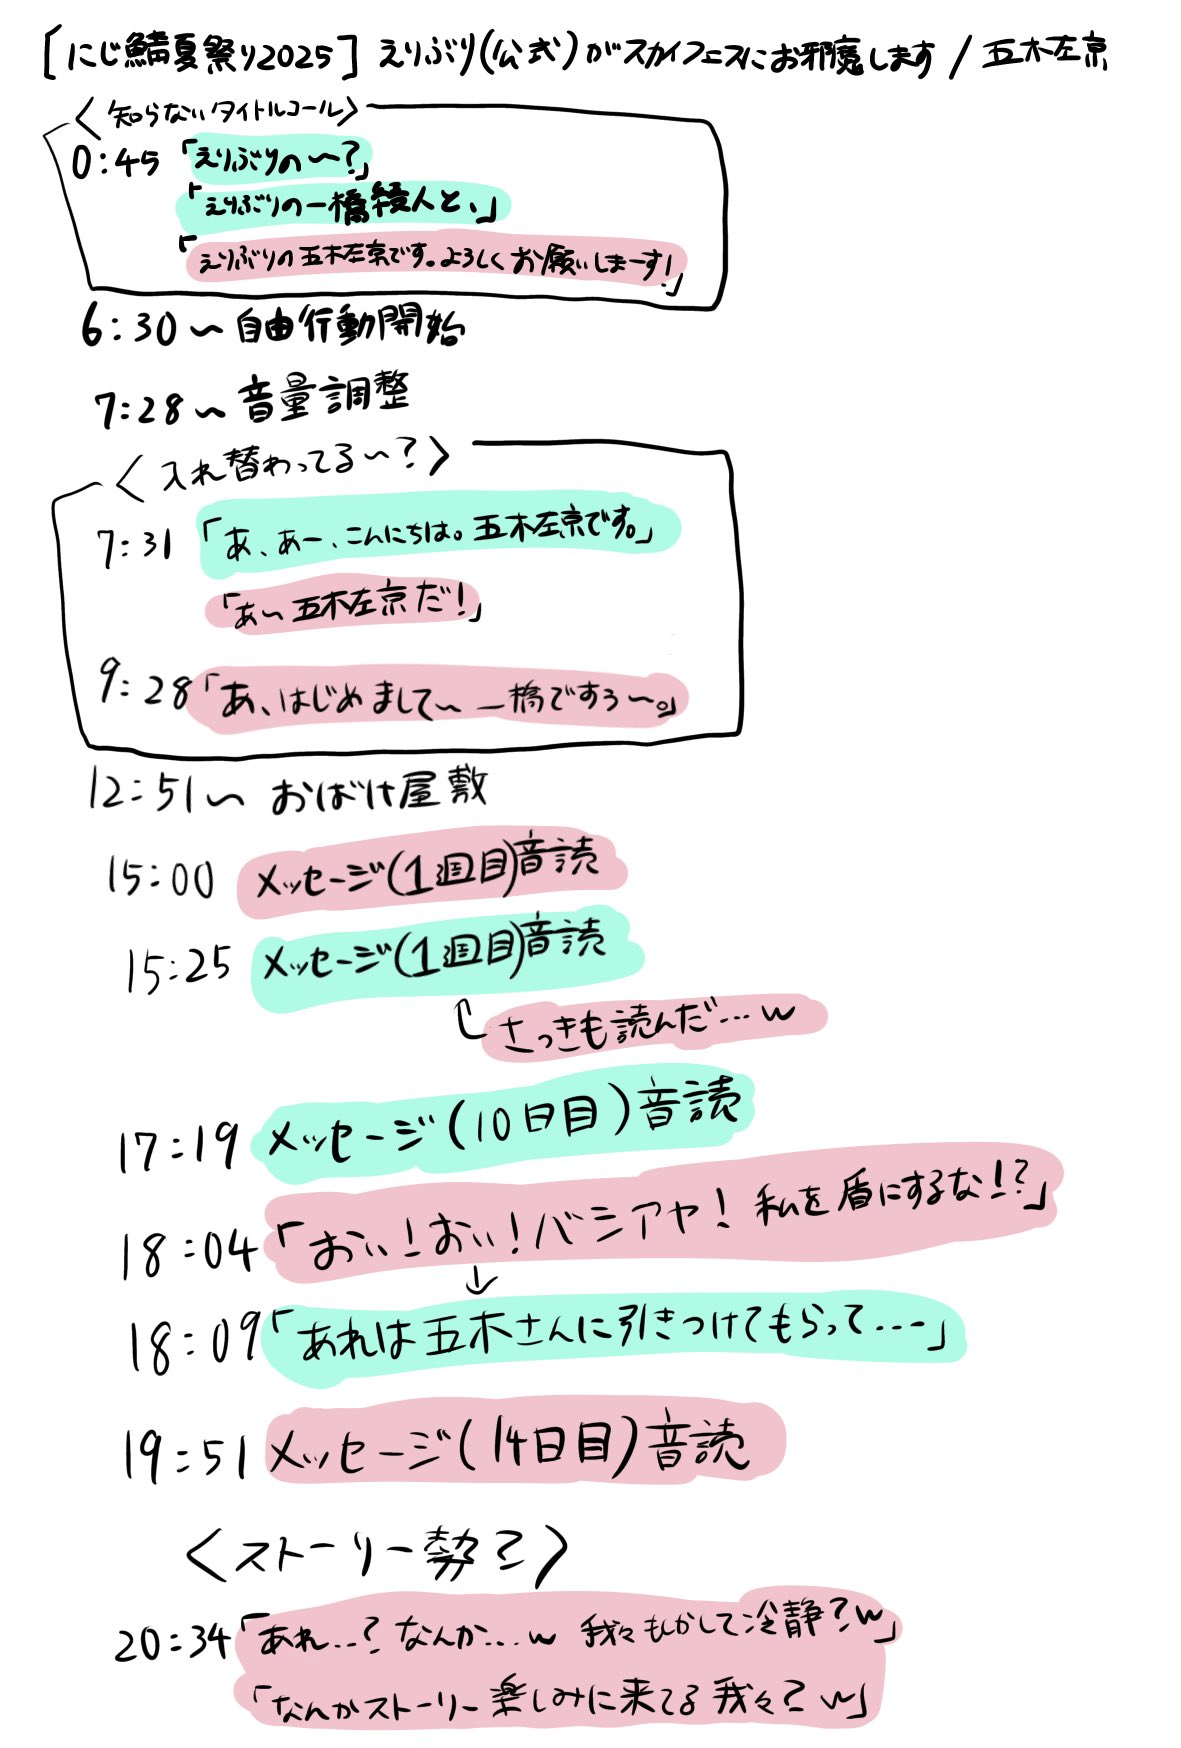 [にじ鯖夏祭り2025] えりぶり(公式)がスカイフェスにお邪魔します / 五木左京
<知らないタイトルコール>
0:45「えりぶりの〜?」
「えりぶりの一橋綾人と、」
「えりぶりの五木左京です。よろしくお願いしまーす!」
6:30〜自由行動開始
7:28〜音量調整
<入れ替わってる〜?>
7:31「あ、あー、こんにちは。五木左京です。」
「あ〜五木左京だ!」
9:28「あ、はじめまして〜一橋ですぅ〜。」
12:51〜おばけ屋敷
15:00 メッセージ(1週目)音読
15:25 メッセージ(1週目)音読
さっきも読んだ…w
17:19 メッセージ(10日目)音読
18:04「おい!おい!バシアヤ!私を盾にするな!?」
18:09「あれは五木さんに引きつけてもらって…」
19:51 メッセージ(14日目)音読
<ストーリー勢?>
20:34「あれ…?なんか…w 我々もしかして冷静?w」
「なんかストーリー楽しみに来てる我々?w」